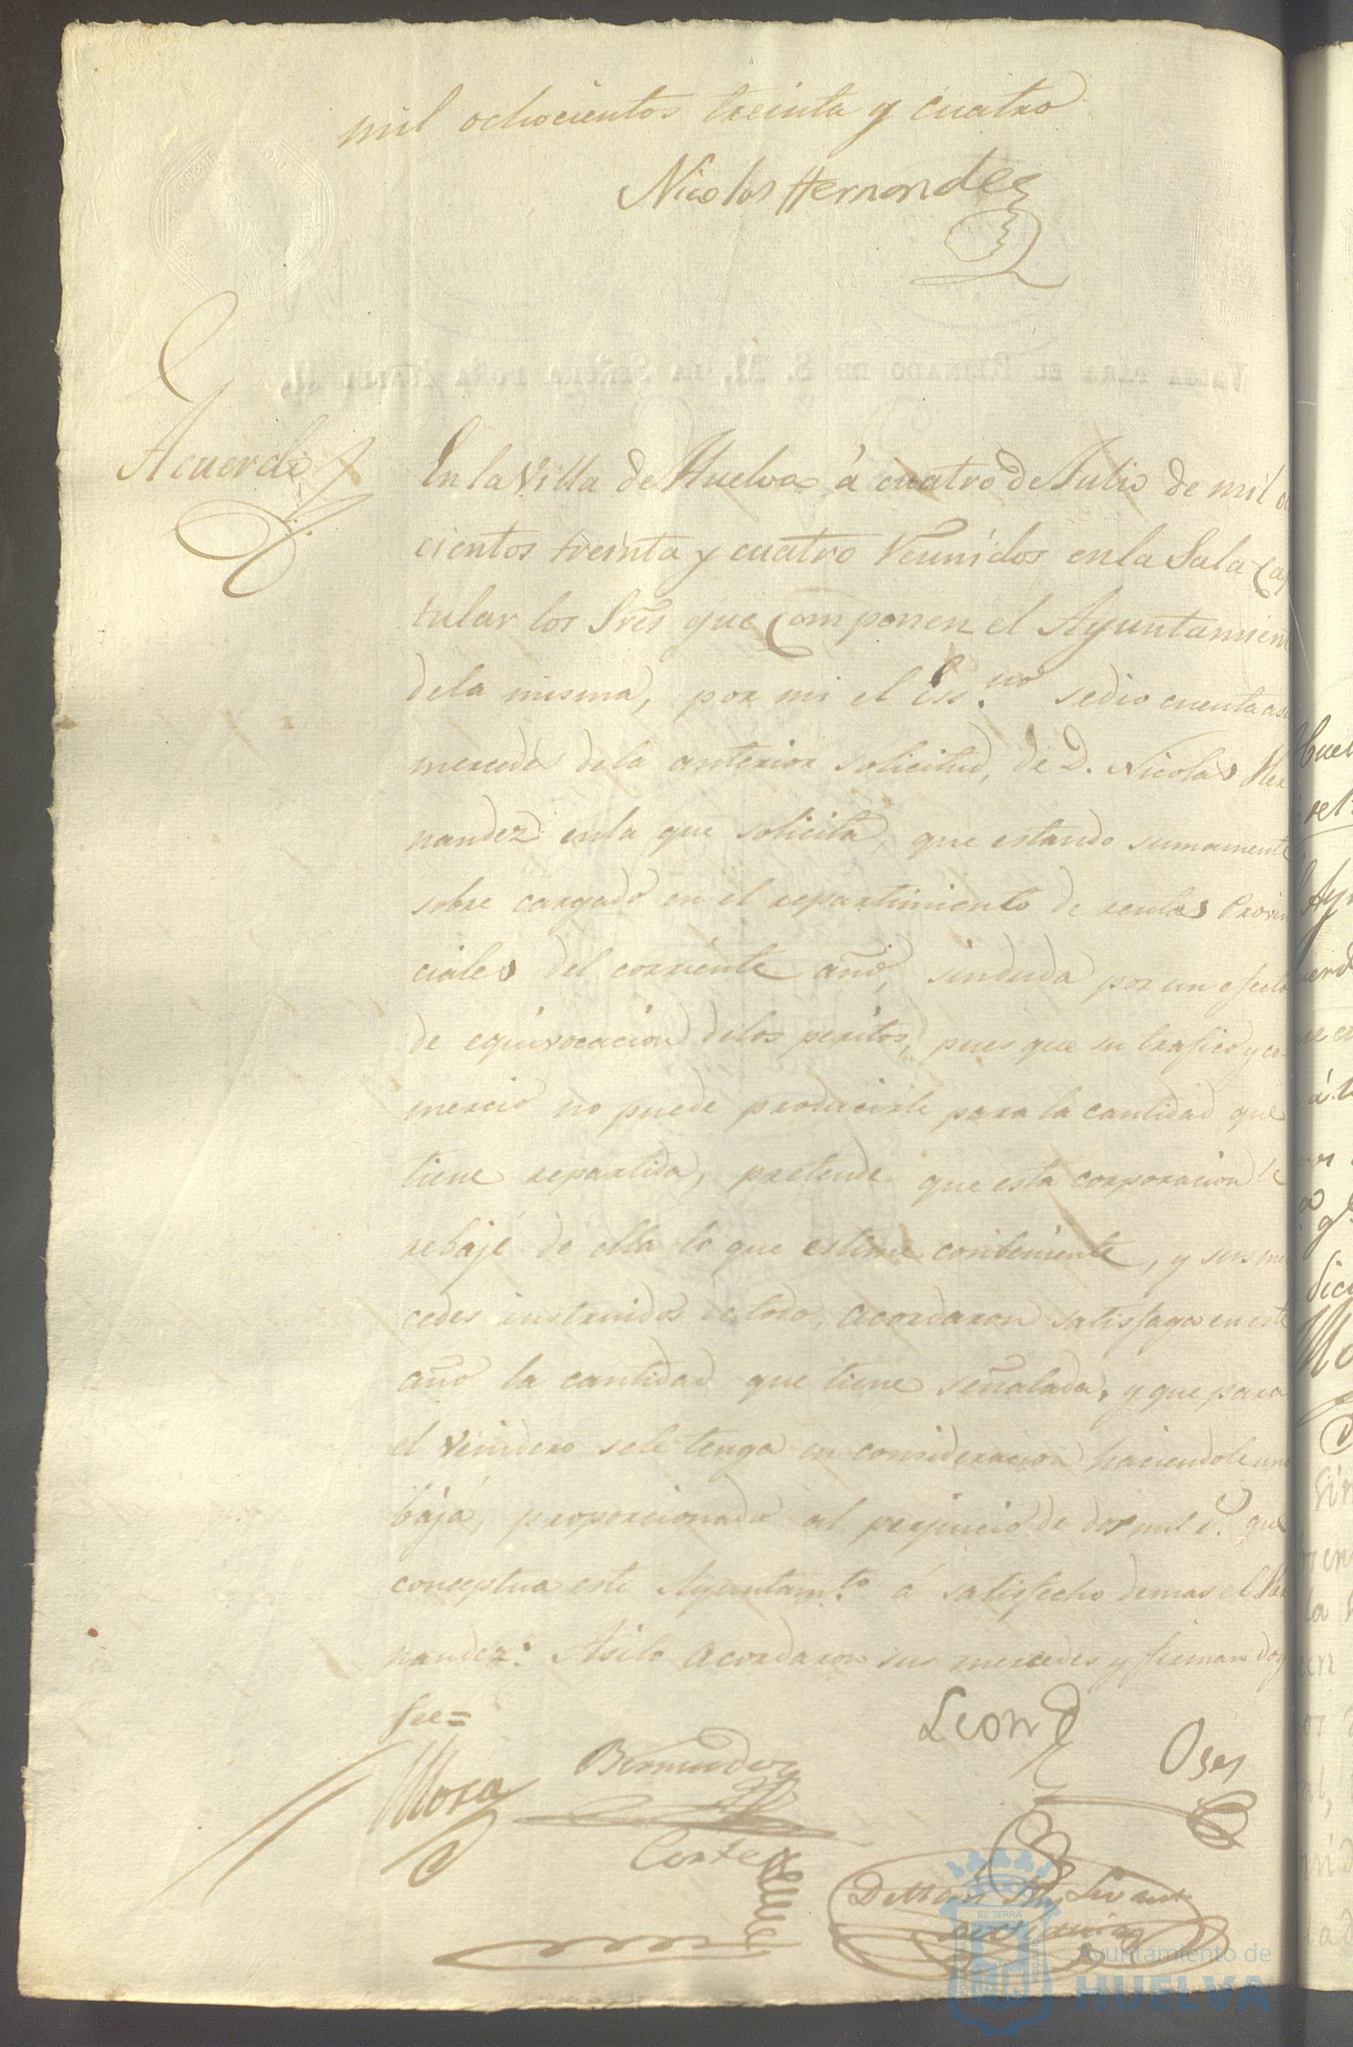 mil ochocientos treinta y cuatro
Nicolas Hernandez
VALGA PARA EL REINADO DE S. M. LA SEÑORA DOÑA ISABEL II.
Acuerdo
En la Villa de Huelva á cuatro de Julio de mil oc
cientos treinta y cuatro Reunidos en la Sala Ca
tular los Sres. que Componen el Ayuntamien
dela misma, por mi el Ess.no sedio cuenta a su
mercedes dela anterior solicitud, de D. Nicolas Her
nandez enla que solicita, que estando sumamente
sobre cargado en el repartimiento de rentas Provin
ciales del corriente año, sinduda por un efecto
de equivocacion delos peritos, pues que su trafico y co
mercio no puede producirle para la cantidad que
tiene repartida, pretende que esta corporacion le
rebaje de ella lo que estime conbeniente, y sus mer
cedes instruidos de todo, acordaron satisfaga en este
año la cantidad que tiene señalada, y que para
el venidero sele tenga en consideracion haciendole una
baja, proporcionada al perjuicio de dos mil r.s que
conceptua este Ayuntam.to á satisfecho demas el Her
nandez: Asilo acordaron sus mercedes y firman doy
fee=
Mora Bermudez Leon Oses
Cortes
ST. TERRA
Ayuntamiento de
HUELVA